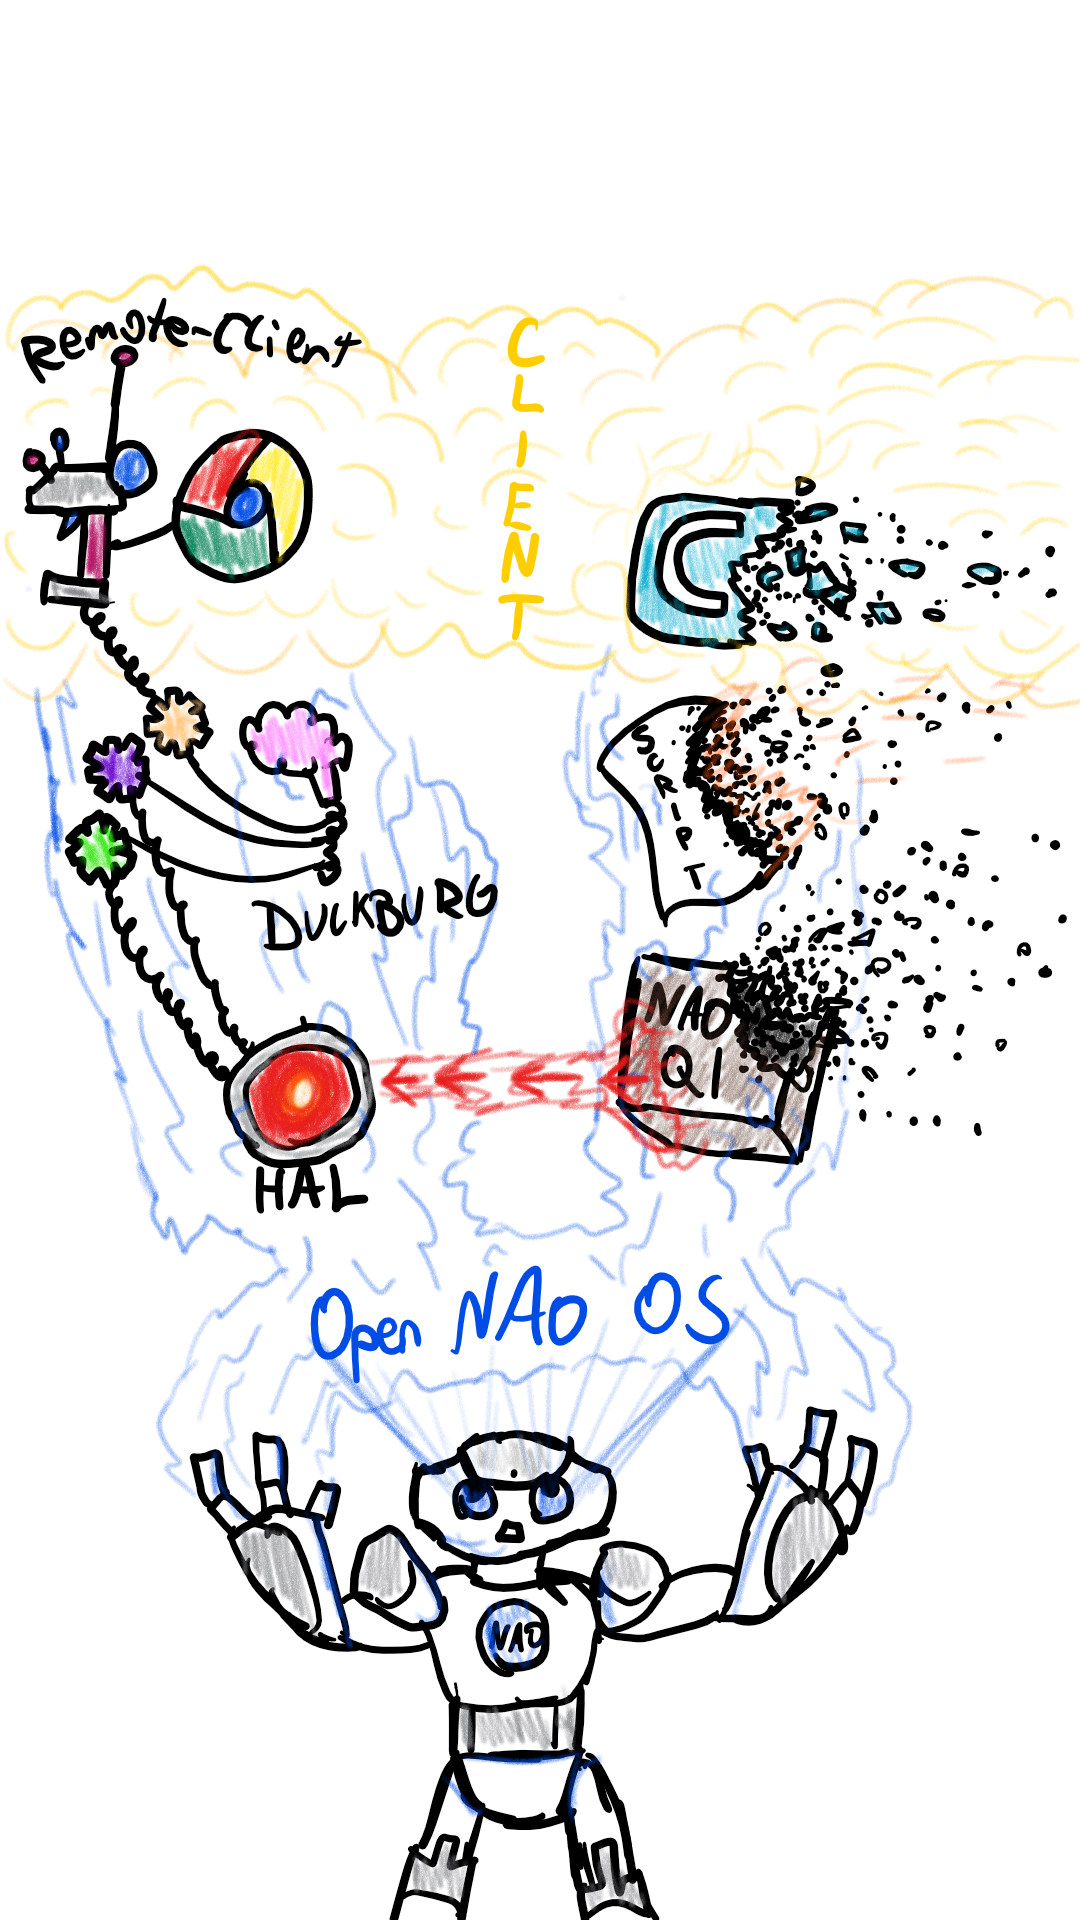 Remote-Client
CLIENT
SCRIPT
DUCKBURG
NAO
QI
HAL
Open NAO OS
NAO